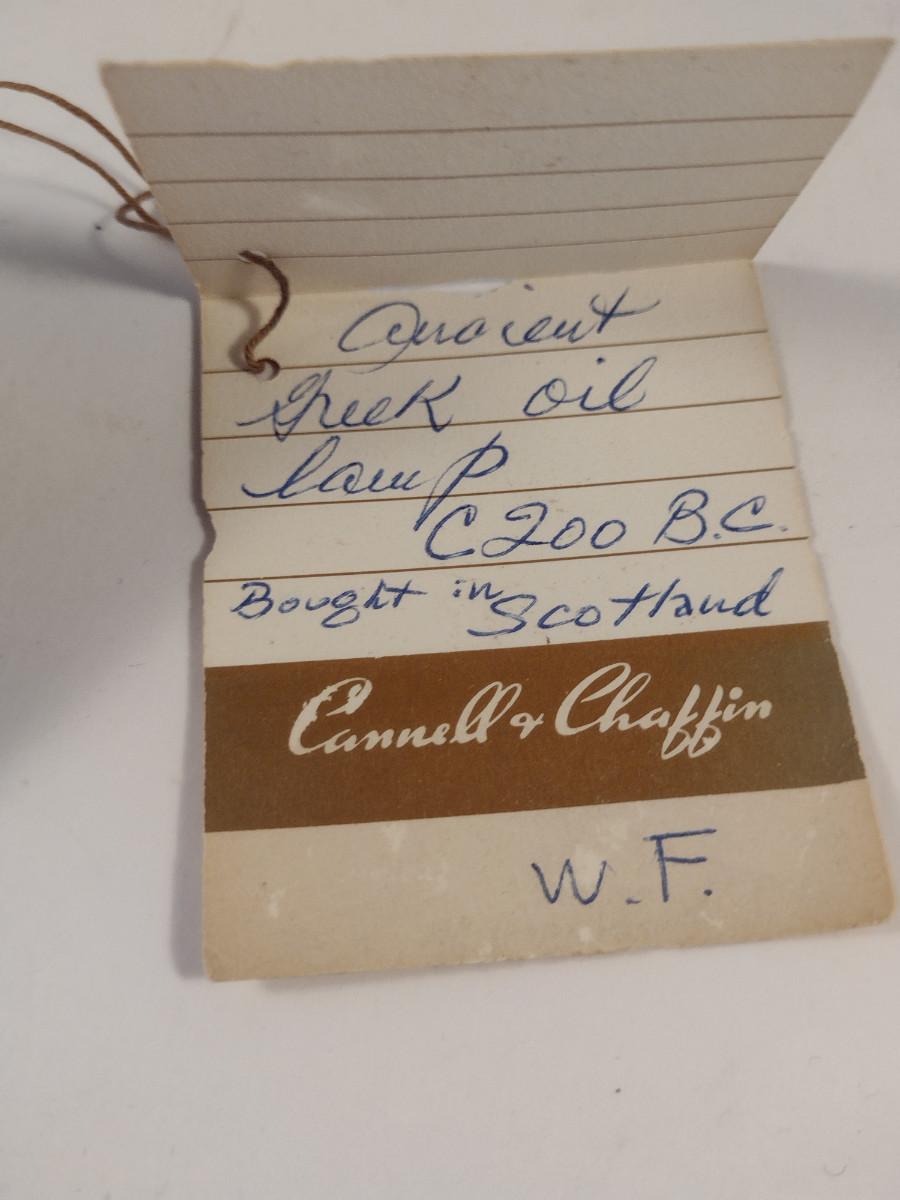 Ancient
Greek oil
lamp
C 200 B.C.
Bought in Scotland
Cannell & Chaffin
W.F.